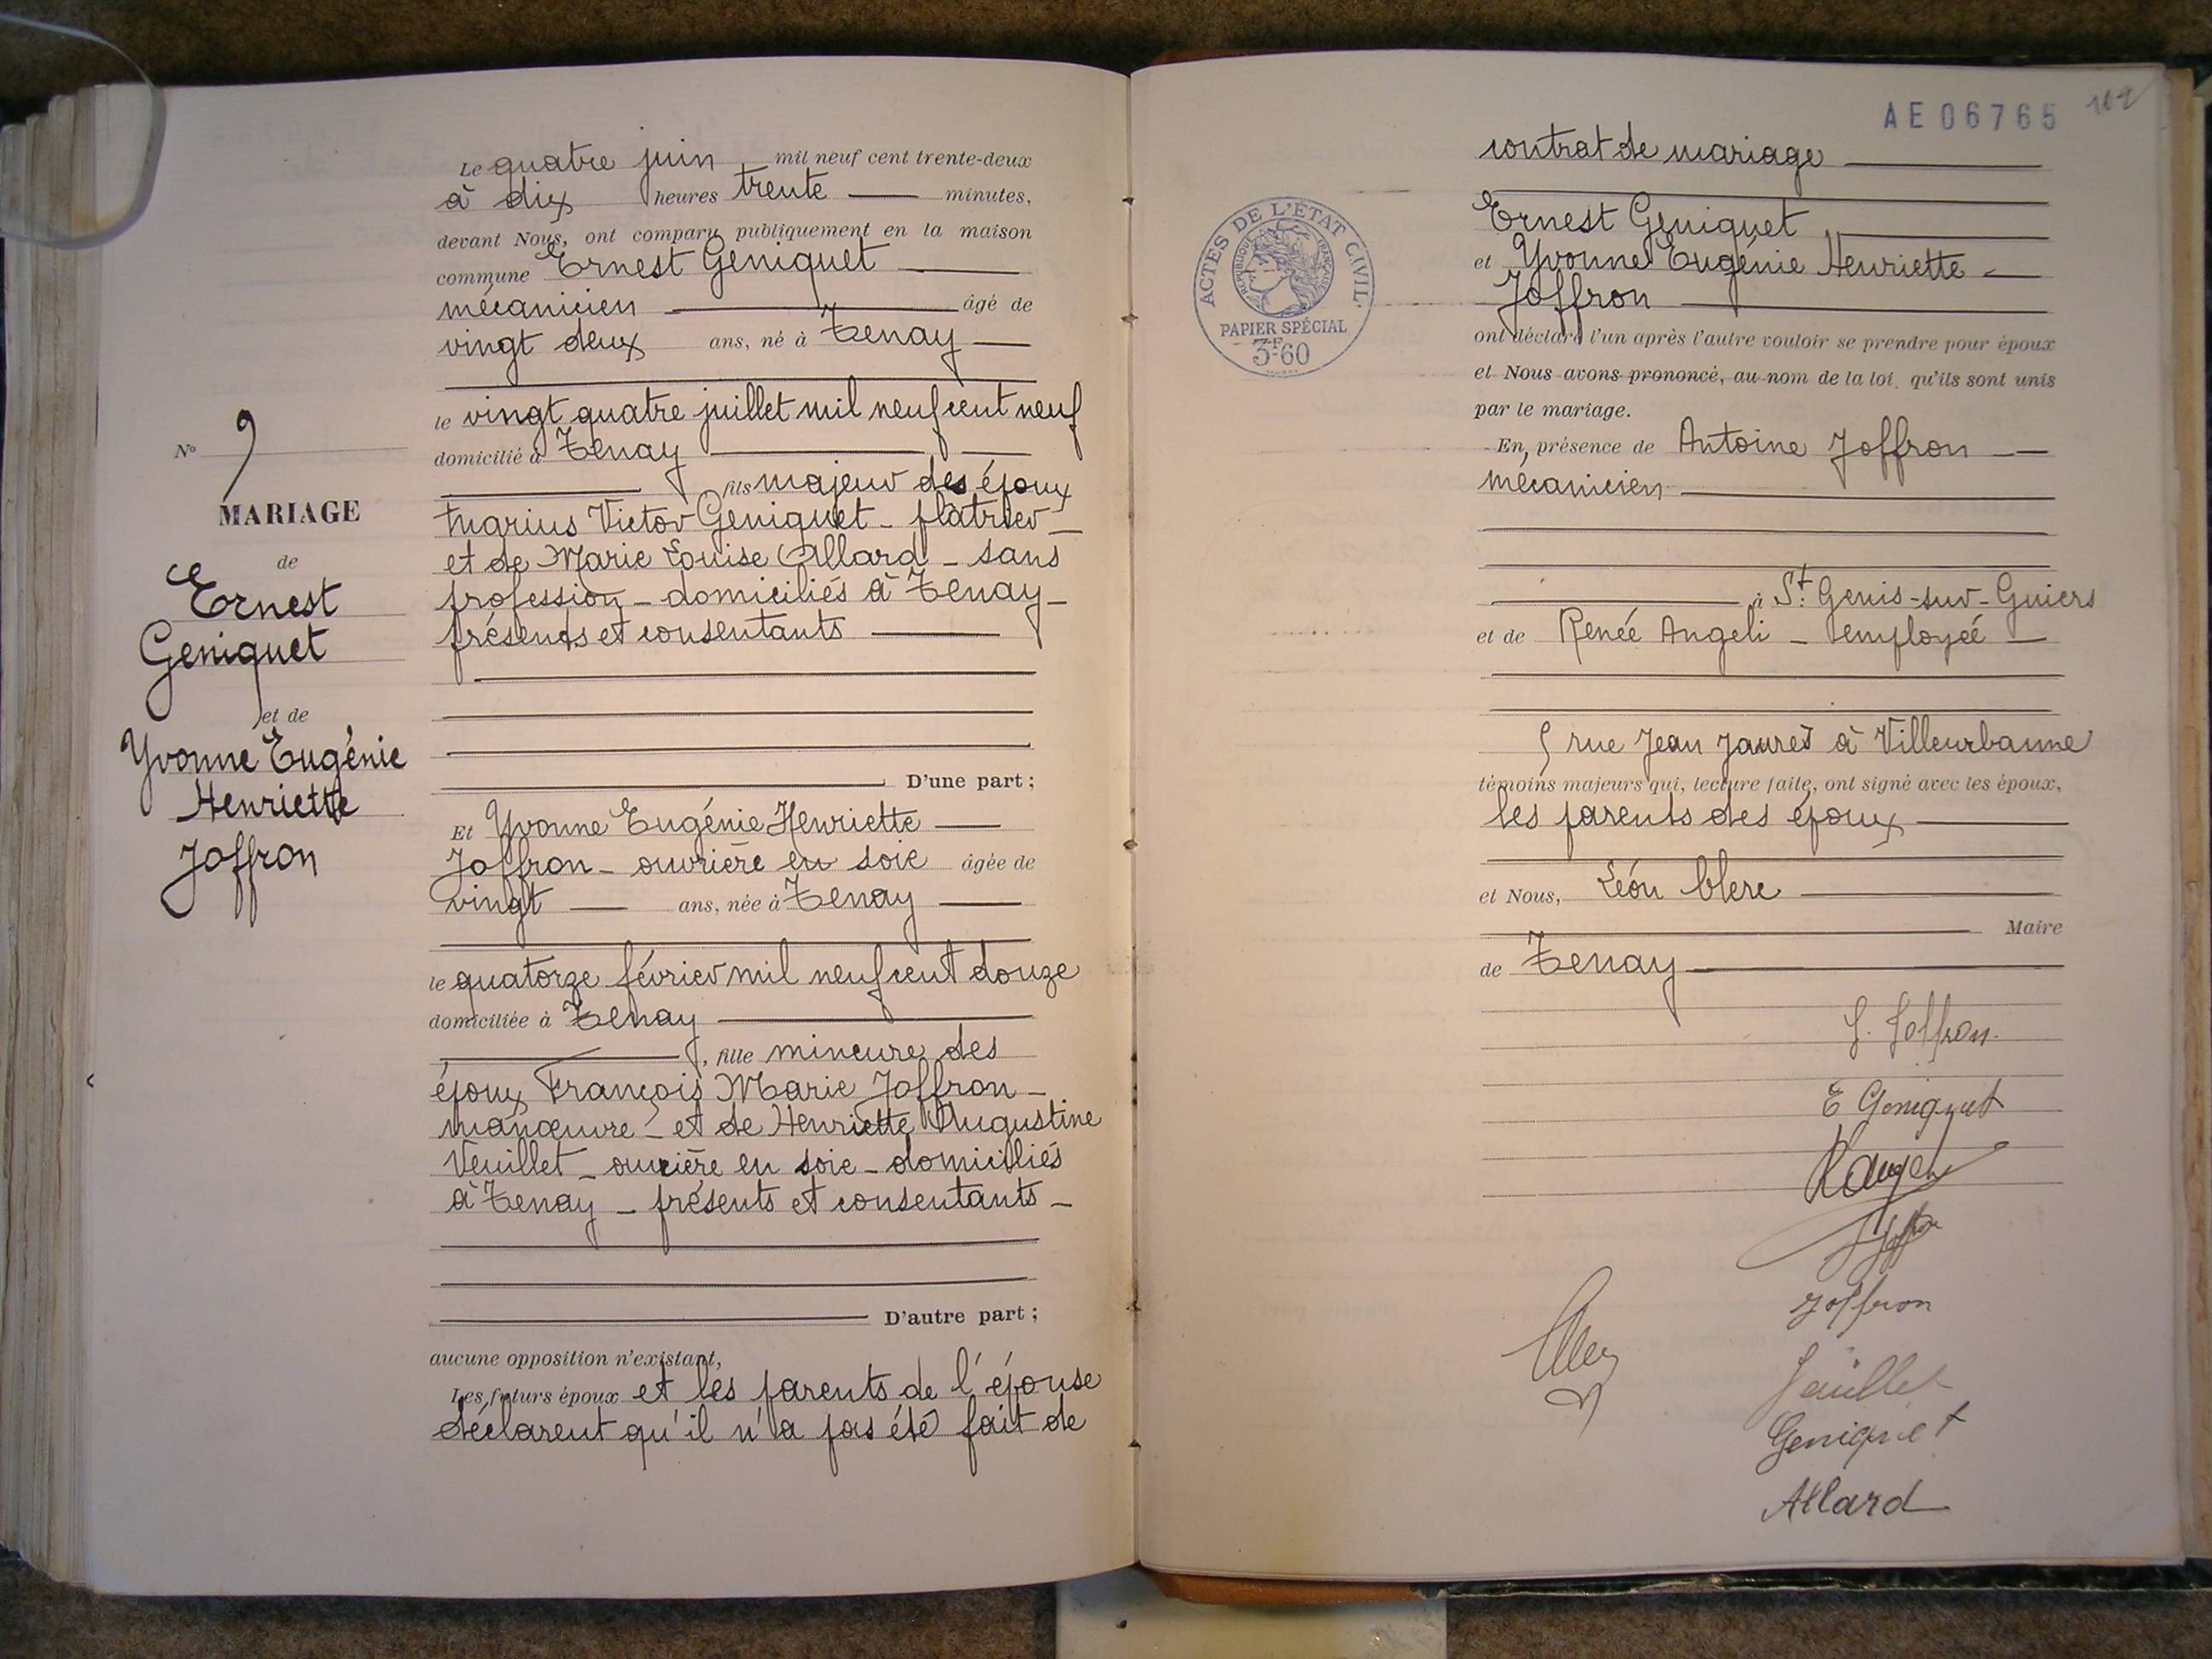 Le quatre juin mil neuf cent trente-deux
à dix heures trente minutes,
devant Nous, ont comparu publiquement en la maison
commune Ernest Geniquet
mécanicien âgé de
vingt deux ans, né à Tenay
le vingt quatre juillet mil neuf cent neuf
domicilié à Tenay
fils majeur des époux
Marius Victor Geniquet - plâtrier -
et de Marie Louise Allard - sans
profession - domiciliés à Tenay -
présents et consentants
D'une part ;
Et Yvonne Eugénie Henriette
Joffron - ouvrière en soie âgée de
vingt ans, née à Tenay
le quatorze février mil neuf cent douze
domiciliée à Tenay
, fille mineure des
époux François Marie Joffron -
manœuvre - et de Henriette Augustine
Veuillet - ouvrière en soie - domiciliés
à Tenay - présents et consentants -
D'autre part ;
aucune opposition n'existant,
Les futurs époux et les parents de l'épouse
déclarent qu'il n'a pas été fait de
N° 9
MARIAGE
de
Ernest
Geniquet
et de
Yvonne Eugénie
Henriette
Joffron
AE 06765
contrat de mariage
Ernest Geniquet
et Yvonne Eugénie Henriette -
Joffron
ont déclaré l'un après l'autre vouloir se prendre pour époux
et Nous avons prononcé, au nom de la loi, qu'ils sont unis
par le mariage.
En présence de Antoine Joffron
mécanicien
à St. Genis-sur-Guiers
et de Renée Angeli - employée
5 rue Jean Jaurès à Villeurbanne
témoins majeurs qui, lecture faite, ont signé avec les époux,
les parents des époux
et Nous, Léon Clere
Maire
de Tenay
ACTES DE L'ÉTAT CIVIL.
RÉPUBLIQUE FRANÇAISE
PAPIER SPÉCIAL
3F60
Y. Joffron
E Geniquet
Joffron
Geniquet
Allard